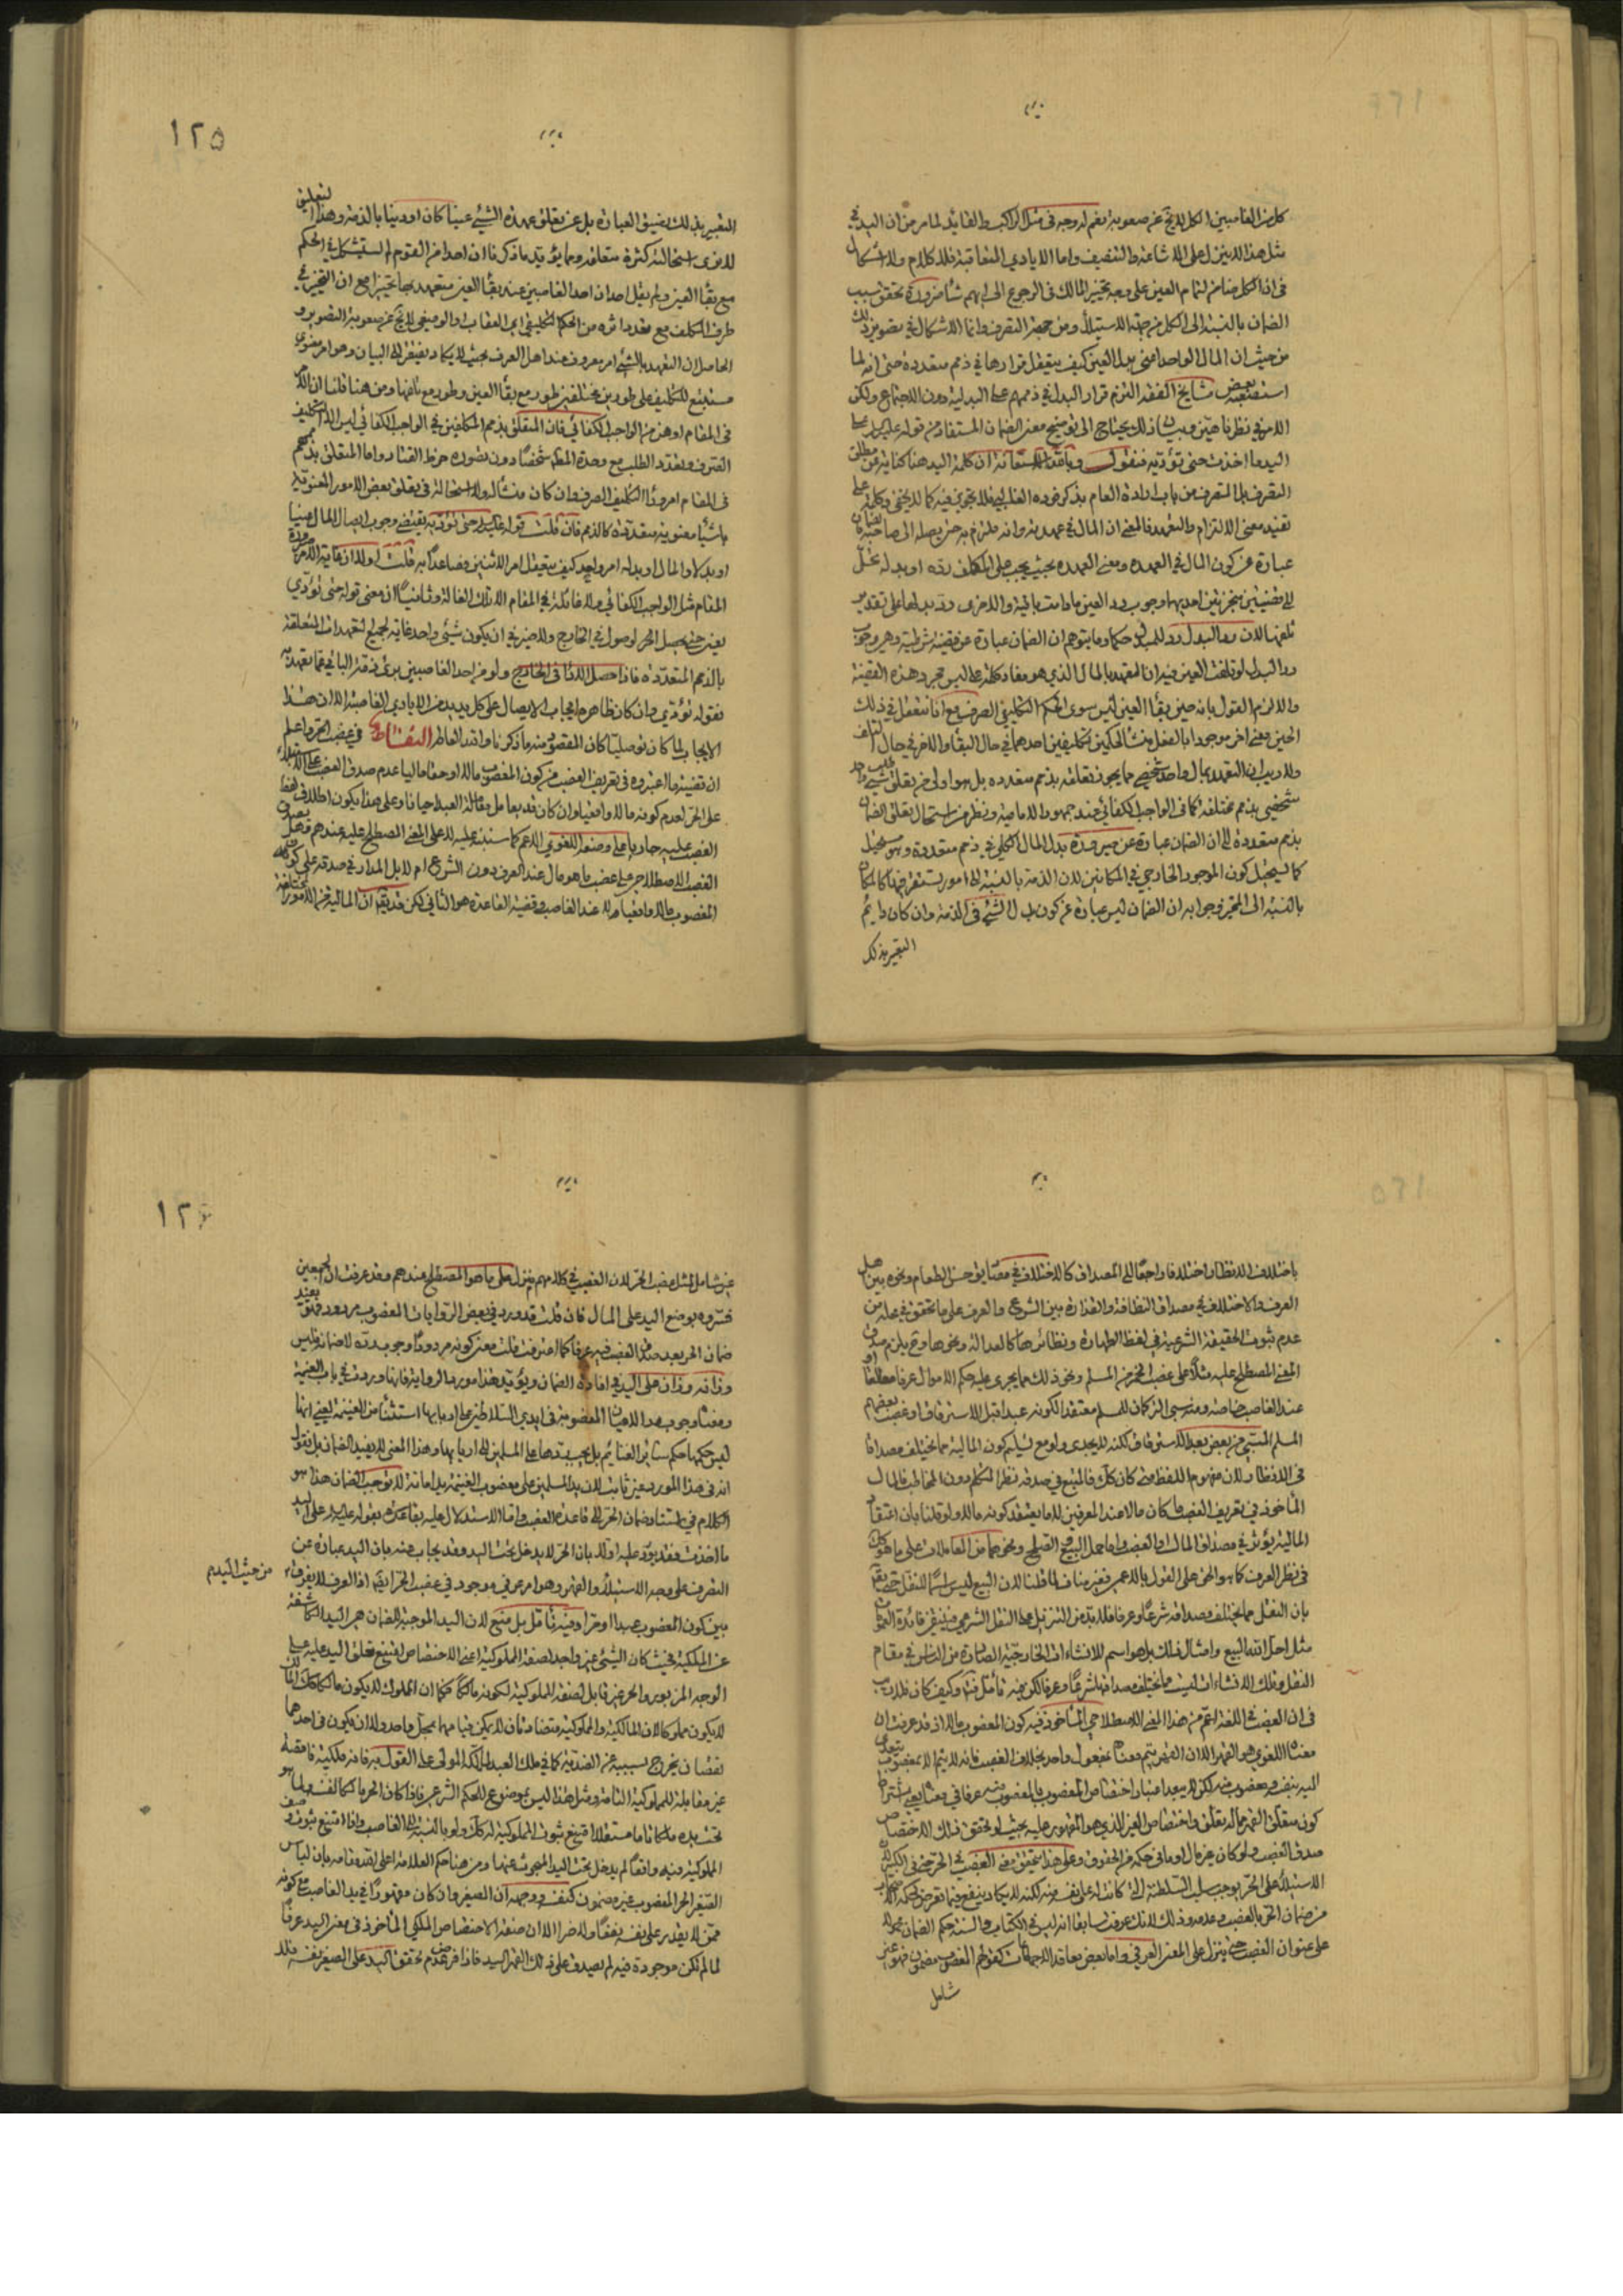 كل من الغاصبين الكل لا يخ عن صعوبة نعم له وجه في مثل الراكب والقائد لما مر من ان اليد في
مثل هذا لا ينزل على الاشاعة والتنصيف واما الايادي المتعاقبة فلا كلام ولا اشكال
في ان الكل ضامن لتمام العين على وجه تخيير المالك في الرجوع الى ايهم شاء ضرورة تحقق سبب
الضمان بالنسبة الى الكل من جهة الاستيلاء ومن جهة التصرف وانما الاشكال في تصوير ذلك
من حيث ان المال الواحد اعني بدل العين كيف يتعقل قرارها في ذمم متعددة حتى انه لما
استصعبه بعض مشايخ الفقه التزم قرار البدل في ذممهم على البدلية دون الاجتماع ولكن
الامر في نظرنا هين وبيان ذلك يحتاج الى توضيح معنى الضمان المستفاد من قوله على
اليد ما اخذت حتى تؤديه فنقول وبالله الاستعانة ان كلمة اليد هنا كناية عن مطلق
التصرف
تفيد معنى الالتزام والتعهد فالمعنى ان المال في عهدته وانه ملزم به حتى يصله الى صاحبه
عبارة عن كون المال في العهدة ومعنى العهدة بحيث يجب على المكلف رده او بدله
قضيتين منجزتين احديهما وجوب رد العين ما دامت باقية والاخرى رد بدلها على تقدير
تلفها لان رد البدل رد للمبدل حكما وما يتوهم ان الضمان عبارة عن قضية شرطية وهي وجوب
رد البدل لو تلفت العين فيه ان التعهد بالمال الذي هو مفاد كلمة على ليس مجرد هذه القضية
والا لزم القول بانه حين بقاء العين ليس سوى الحكم التكليفي الصرف مع انا نتعقل في ذلك
الحين معنى اخر موجودا بالفعل منشأ لحكمين تكليفين احدهما في حال البقاء والاخر في حال التلف
ولا ريب ان التعهد بمال واحد شخصي مما يجوز تعلقه بذمم متعددة بل هو اولى من تعلق طلب شيء واحد
شخصي بذمم مختلفة كما في الواجب الكفائي عند جمهور الامامية ونظر من استحال تعلق الضمان
بذمم متعددة الى ان الضمان عبارة عن صيرورة بدل المال الكلي في ذمم متعددة وهو مستحيل
كما يستحيل كون الموجود الخارجي في المكانين لان الذمة بالنسبة الى امور يستقر فيها كالمكان
بالنسبة الى المتحيز وجوابه ان الضمان ليس عبارة عن كون بدل الشيء في الذمة وان كان دائم
التعبير بذلك
١٢٥
التعبير بذلك لضيق العبارة بل عن تعلق عهدة الشيء عينا كان او دينا بالذمة وهذا التعلق
لا نرى استحالة كثرة متعلقه ومما يؤيد ما ذكرنا ان احدا من القوم لم يستشكل في الحكم
مع بقاء العين ولم يقل احد ان احد الغاصبين عند بقاء العين متعهد بها تخييرا مع ان التخيير في
طرف المكلف مع تعدد اثره من الحكم التكليفي اي العقاب او الوضعي لا يخ عن صعوبة التصوير و
الحاصل ان التعهد بالشيء امر معروف عند اهل العرف بحيث لا يكاد يفتقر الى البيان وهو امر معنوي
مستتبع للتكليف على طورين مختلفين طور مع بقاء العين وطور مع تلفها ومن هنا قلنا ان الامر
في المقام اهون من الواجب الكفائي فان المتعلق بذمم المكلفين في الواجب الكفائي ليس الا التكليف
الصرف وتعدد الطلب مع وحدة المطلوب شخصا دون تصوره خرط القتاد واما المتعلق بذممهم
في المقام امر وراء التكليف الصرف وان كان منشأ له ولا استحالة في تعلق بعض الامور المعنوية
باشياء معنوية متعددة كالذمم فان قلت قوله حتى تؤديه يقتضي وجوب ايصال المال عينا
او بدلا والمال او بدله امر واحد كيف يتعقل امر الاثنين فصاعدا به قلت اولا ان غاية الامر صيرورة
المقام مثل الواجب الكفائي ولا غائلة في المقام الا تلك الغائلة وثانيا ان معنى قوله حتى تؤدي
يعني حتى يحصل الوصول في الخارج ولا ضير في ان يكون شيء واحد غاية لجميع التعهدات المتعلقة
بالذمم المتعددة فاذا حصل الاداء في الخارج ولو من احد الغاصبين برئ ذمة الباقي مما تعهد به
فقوله تؤدي وان كان ظاهره ايجاب الايصال على كل يد يد من الايادي الغاصبة الا ان هذا
الايجاب لما كان توصليا كان المقصود منه ما ذكرناه والله العاطر التقاط في غصب الحر واعلم
ان قضية ما اعتبروه في تعريف الغصب من كون المغصوب مالا او حقا ماليا عدم صدق الغصب على الاستيلاء
على الحر لعدم كونه مالا واقعيا وان كان قد يعامل معاملة العبد احيانا وعلى هذا يكون اطلاق لفظ
الغصب عليه جاريا على وضعه اللغوي الاعم كما سننبه عليه لا على المعنى المصطلح عليه عندهم وهل يصدق
الغصب الاصطلاحي على غصب ما هو مال عند العرف دون الشرع ام لا بل المدار في صدقه على كون
المغصوب مالا واقعيا لا عند الغاصب وقضية القاعدة هو الثاني لكن قد يقال ان المالية من الامور المختلفة
باختلاف الانظار اختلافا راجعا الى المصداق كالاختلاف في مصاديق حسن الطعام ونحوه بين اهل
العرف والاختلاف في مصداق النظافة والقذارة بين الشرع والعرف على ما تحقق في محله من
عدم ثبوت الحقيقة الشرعية في لفظ الطهارة ونظائرها كالعدالة ونحوها وح يلزم صدق
المعنى المصطلح عليه مثلا على غصب الخمر من المسلم ونحو ذلك مما يجري عليه حكم الاموال عرفا مطلقا او
عند الغاصب خاصة
المسلم السبي من بعض بعد الاسترقاق لكنه لا يجدي ولو مع تسليم كون المالية مما تختلف مصداقا
في الانظار لان مفهوم اللفظ متى كان كك فالمتبع في صدقه نظر المتكلم دون المخاطب فالمال
المأخوذ في تعريف الغصب ما كان مالا عند المعرفين لا ما يعتقد كونه مالا ولو قلنا بان اعتقاد
المالية يؤثر في مصداق المال والغصب واما حمل البيع والصلح ونحوهما من المعاملات على ما هو كك
في نظر العرف كما هو الحق على القول بالاعم فغير مناف لما قلنا لان البيع ليس اسما للنقل حتى يقال
بان النقل مما يختلف مصداقه شرعا وعرفا فلا بد من التنزيل على النقل الشرعي فينتفي فائدة العمومات
مثل احل الله البيع وامثال ذلك بل هو اسم للانشاءات الخارجية الصادرة من الناس في مقام
النقل وتلك الانشاءات ليست مما يختلف مصداقها شرعا وعرفا لكن فيه تأمل فتدبر وكيف كان فلا ريب
في ان الغصب في اللغة اعم من هذا المعنى الاصطلاحي المأخوذ فيه كون المغصوب مالا اذ قد عرفت ان
معناه اللغوي هو القهر الا ان القهر يتم معناه بمفعول واحد بخلاف الغصب فانه لا يتم الا بمغصوب يتعدى
اليه بنفسه ومغصوب منه لكن لا يبعد اعتبار اختصاص المغصوب بالمغصوب منه عرفا في معناه
كون متعلق القهر مما له تعلق واختصاص بالغير الذي هو المقهور عليه بحيث لو تحقق ذلك الاختصاص
صدق الغصب ولو كان غير مال او ما في حكمه من الحقوق وعلى هذا يتحقق معنى الغصب في الحر
الاستيلاء على الحر يوجب سلب السلطنة التي كانت له على نفسه منه لكنه لا يكاد ينفع
من ضمان الحر بالغصب وعدمه وذلك لانك عرفت سابقا انه ليس في الكتاب والسنة حكم الضمان محمولا
على عنوان الغصب حتى ينزل على المعنى العرفي واما بعض معاقد الاجماعات كقولهم المغصوب مضمون فهو غير
شامل
١٢٦
غير شامل لمثل غصب الحر لان الغصب في كلامهم منزل على ما هو المصطلح عندهم وقد عرفت ان المجمعين
فسروه بوضع اليد على المال فان قلت قد ورد في بعض الروايات المغصوب مردود فتفيد
ضمان الحر بعد صدق الغصب فيه عرفا كما اعترفت قلت معنى كونه مردودا وجوب رده لا ضمانه فليس
وزانه وزان على اليد في افادة الضمان ويؤيد هذا مورد الرواية فانها وردت في باب الغنيمة
ومعناه وجوب رد الاعيان المغصوبة في ايدي السلاطين على اربابها استثناء من الغنيمة يعني انها
ليس حكمها حكم سائر الغنائم بل يجب ردها على المسلمين الى اربابها وهذا المعنى لا يفيد الضمان بل نقول
انه في هذا المورد غير ثابت لان يد المسلمين على مغصوب الغنيمة يد امانة لا توجب الضمان هذا هو
الكلام في استناد ضمان الحر الى قاعدة الغصب واما الاستدلال عليه بقوله على اليد
ما اخذت فقد يورد عليه اولا بان الحر لا يدخل تحت اليد وقد يجاب عنه بان اليد عبارة عن
التصرف على وجه الاستيلاء والقهر وهو امر عرفي موجود في غصب الحر ايضا اذ العرف لا يفرق
من حيث اليد
بين كون المغصوب عبدا او حرا وفيه تأمل بل منع لان اليد الموجبة للضمان هي اليد الكاشفة
عن الملكية فحيث كان الشيء غير واجد لصفة المملوكية اعني الاختصاص امتنع تعلق اليد عليه على
الوجه المزبور والحر غير قابل لصفة المملوكية لكونه مالكا فكما ان المملوك لا يكون مالكا كك المالك
لا يكون مملوكا لان المالكية والمملوكية متضادتان لا يمكن قيامهما بمحل واحد الا ان يكون في احدهما
نقصان يخرج بسببه عن الضدية كما في ملك العبد لماملكه المولى على القول به فانه ملكية ناقصة
غير مقابلة للمملوكية التامة ومثل هذا ليس بموضوع للحكم الشرعي فاذا كان الحر مالكا لنفسه ولما هو
تحت يده ملكا تاما مستقلا امتنع ثبوت المملوكية له كك ولو بالنسبة الى الغاصب واذا امتنع ثبوت صفة
المملوكية فيه واقعا لم يدخل تحت اليد المبحوث عنها ومن هنا حكم العلامة اعلى الله مقامه بان لباس
الصغير الحر المغصوب غير مضمون كنفسه ووجهه ان الصغير وان كان مقهورا في يد الغاصب مع كونه
ممن لا يقدر على نفسه نفعا ولا ضرا الا ان صفة الاختصاص الملكي المأخوذ في معنى اليد عرفا
لما لم تكن موجودة فيه لم يصدق على ذلك القهر اليد فاذا فرض عدم تحقق اليد على الصغير نفسه فلا